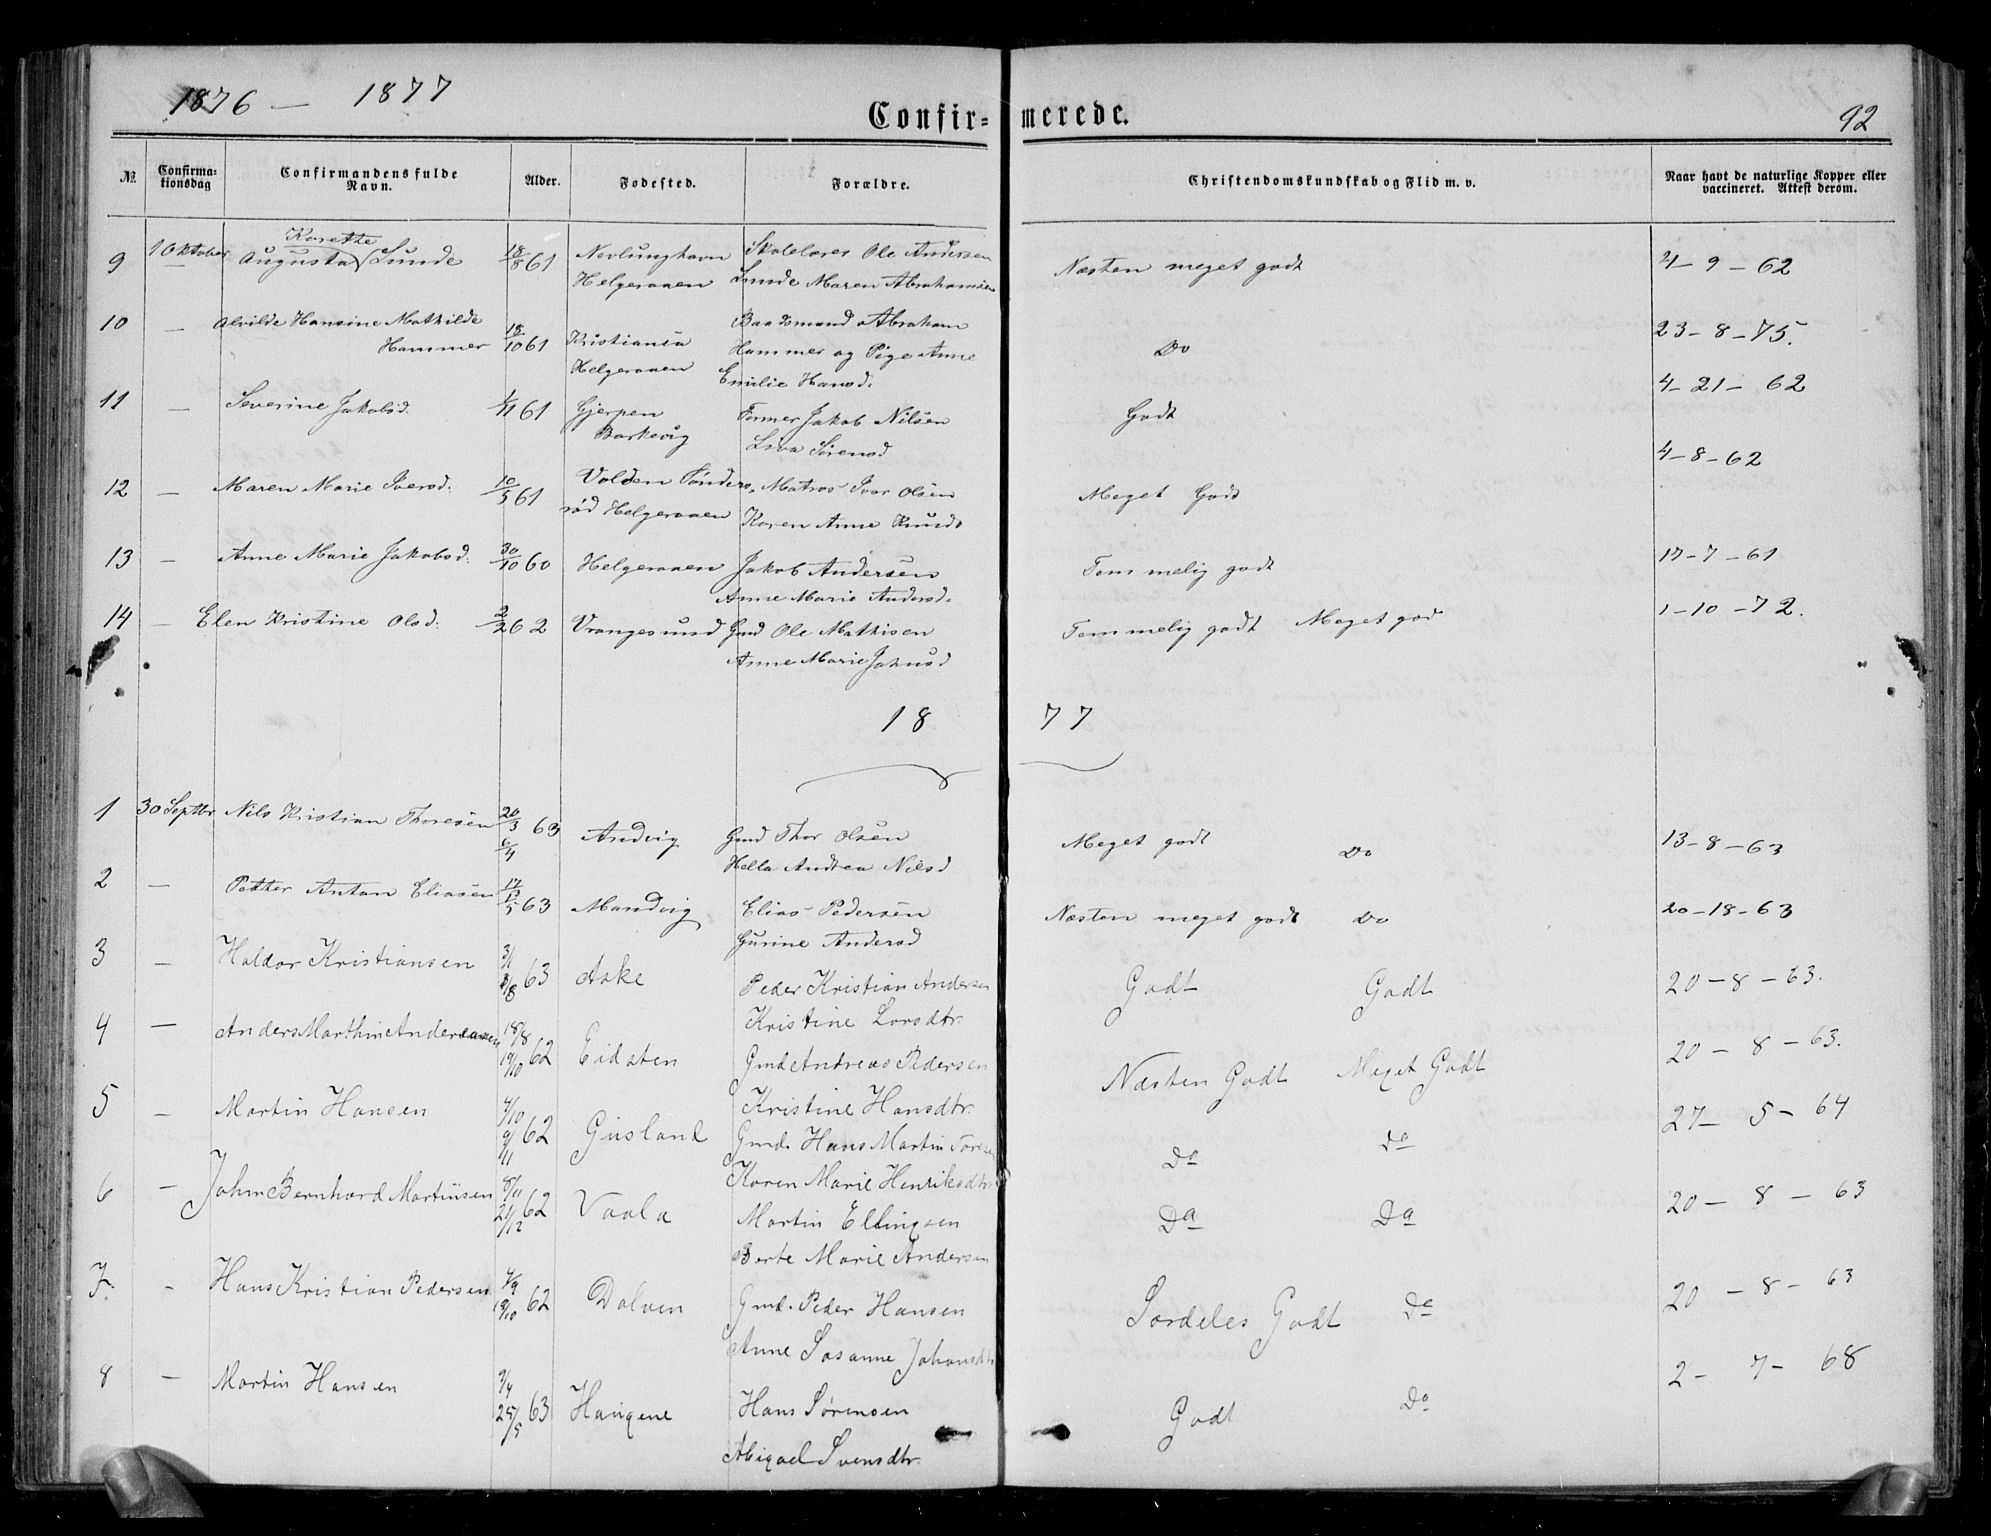 1876 — 1877
Confir= merede. 92
№ Confirma=tionsdag Confirmandens fulde Navn. Alder. Fodested. Forældre. Christendomskundskab og Flid m. v. Naar havt de naturlige Kopper eller vaccineret. Attest derom.
Karette
9 1 Oktober Augusta Lunde 18/8 61 Nevlunghavn Skolelærer Ole Andersen Næsten meget godt 4–9–62
Helgeraaen Lunde Maren Abrahamsen
10 — Alvilde Hansine Mathilde Baadsmand Abraham 23–8–75.
Hammer 18/10 61 Kristiania Hammer og Pige Anne Do
Helgeraaen Emilie Hansd.
11 — Severine Jakobsd. 1/11 61 Gjerpen Former Jakob Nilsen Godt 4–21–62
Barkevig Liva Sörensd
12 — Maren Marie Iversd. 10/5 61 Volden Sönders Matros Ivar Olsen Meget Godt 4–8–62
röd Helgeraaen Karen Anne Knuds
13 — Anne Marie Jakobsd. 30/10 60 Helgeraaen Jakob Andersen Temmelig godt 17–7–61
Anne Marie Andersd.
14 — Elen Kristine Olsd. 2/2 62 Vrangesund Gmd Ole Mathisen Temmelig godt Meget god 1–10–72.
Anne Marie Jahnsd
18 77
1 30 Septbr Nils Kristian Thoresen 20/3 6/4 63 Andvig Gmd Thor Olsen Meget godt Do 13–8–63
Hella Andrea Nilsd
2 — Petter Anton Eliasen 63 Mandvig Elias Pedersen Næsten meget godt Do 20–18–63
Gurine Andersd
3 — Haldor Kristiansen 63 Aske Peder Kristian Andersen Godt Godt 20–8–63.
Kristine Larsdtr.
4 — Anders Marthin Anderssen 18/8 19/10 62 Eidsten Gmd Andreas Pedersen Næsten Godt Meget Godt 20–8–63.
Kristine Hansdtr.
5 — Martin Hansen 62 Gusland Gmd. Hans Martin Tores Do do 27–5–64
Karen Marie Henriksdtr
6 — John Bernhard Martinsen 8/11 21/12 62 Vaala Martin Ellingsen Do Do 20–8–63
Berte Marie Andersen
7. — Hans Kristian Pedersen 62 Dolven Gmd. Peder Hansen Særdeles Godt Do 20–8–63
Anne Sosanne Johansdtr
8 — Martin Hansen 9/4 25/5 63 Haugene Hans Sørensen Godt Do 2–7–68
Abigael Svensdtr.